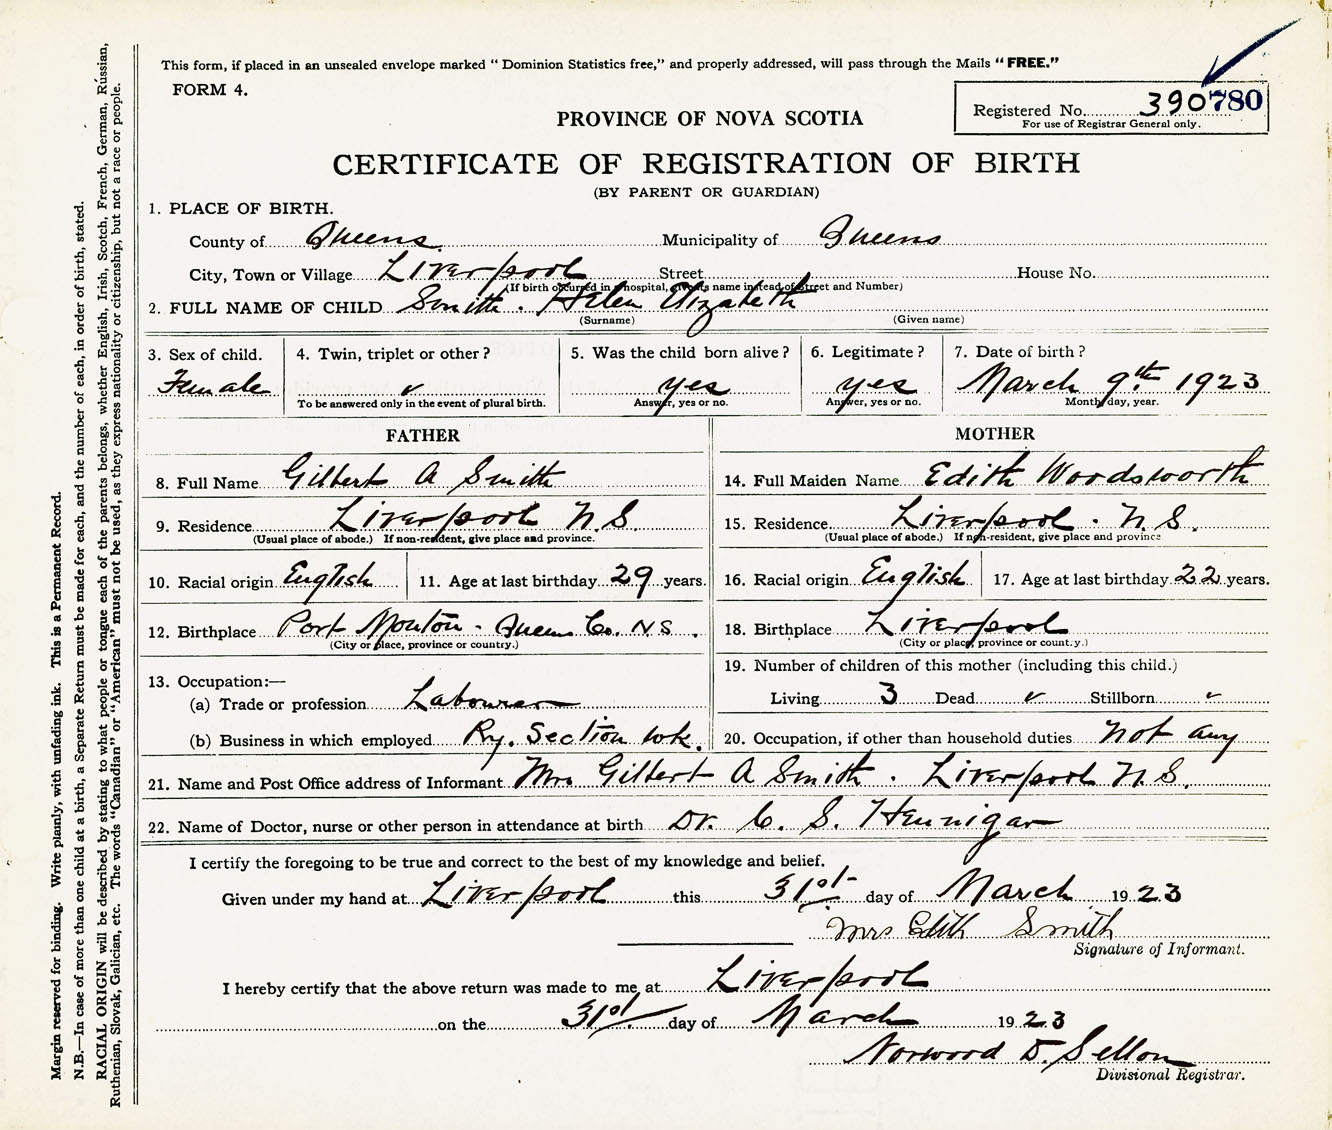 This form, if placed in an unsealed envelope marked “ Dominion Statistics free,” and properly addressed, will pass through the Mails “ FREE.”
FORM 4.
Registered No. 390780
For use of Registrar General only.
PROVINCE OF NOVA SCOTIA
CERTIFICATE OF REGISTRATION OF BIRTH
(BY PARENT OR GUARDIAN)
1. PLACE OF BIRTH.
County of Queens. Municipality of Queens
City, Town or Village Liverpool Street House No.
(If birth occurred in a hospital, give its name instead of Street and Number)
2. FULL NAME OF CHILD Smith. Helen Elizabeth
(Surname) (Given name)
3. Sex of child. 4. Twin, triplet or other? 5. Was the child born alive? 6. Legitimate? 7. Date of birth?
Female ✓ yes yes March 9th 1923
To be answered only in the event of plural birth. Answer, yes or no. Answer, yes or no. Month, day, year.
FATHER MOTHER
8. Full Name Gilbert A Smith 14. Full Maiden Name Edith Wordsworth
9. Residence Liverpool N.S. 15. Residence Liverpool. N.S.
(Usual place of abode.) If non-resident, give place and province. (Usual place of abode.) If non-resident, give place and province
10. Racial origin English 11. Age at last birthday 29 years. 16. Racial origin English 17. Age at last birthday 22 years.
12. Birthplace Port Mouton - Queens Co. N.S. 18. Birthplace Liverpool
(City or place, province or country.) (City or place, province or country.)
13. Occupation:— 19. Number of children of this mother (including this child.)
(a) Trade or profession Labourer Living 3 Dead ✓ Stillborn ✓
(b) Business in which employed Ry. Section wk. 20. Occupation, if other than household duties not any
21. Name and Post Office address of Informant Mrs Gilbert A Smith. Liverpool N.S.
22. Name of Doctor, nurse or other person in attendance at birth Dr. C. S. Hennigar
I certify the foregoing to be true and correct to the best of my knowledge and belief.
Given under my hand at Liverpool this 31st day of March 1923
Mrs Edith Smith
Signature of Informant.
I hereby certify that the above return was made to me at Liverpool
on the 31st day of March 1923
Norwood D. Sellon
Divisional Registrar.
Margin reserved for binding. Write plainly, with unfading ink. This is a Permanent Record.
N.B.—In case of more than one child at a birth, a Separate Return must be made for each, and the number of each, in order of birth, stated.
RACIAL ORIGIN will be described by stating to what people or tongue each of the parents belongs, whether English, Irish, Scotch, French, German, Russian,
Ruthenian, Slovak, Galician, etc. The words “Canadian” or “American” must not be used, as they express nationality or citizenship, but not a race or people.